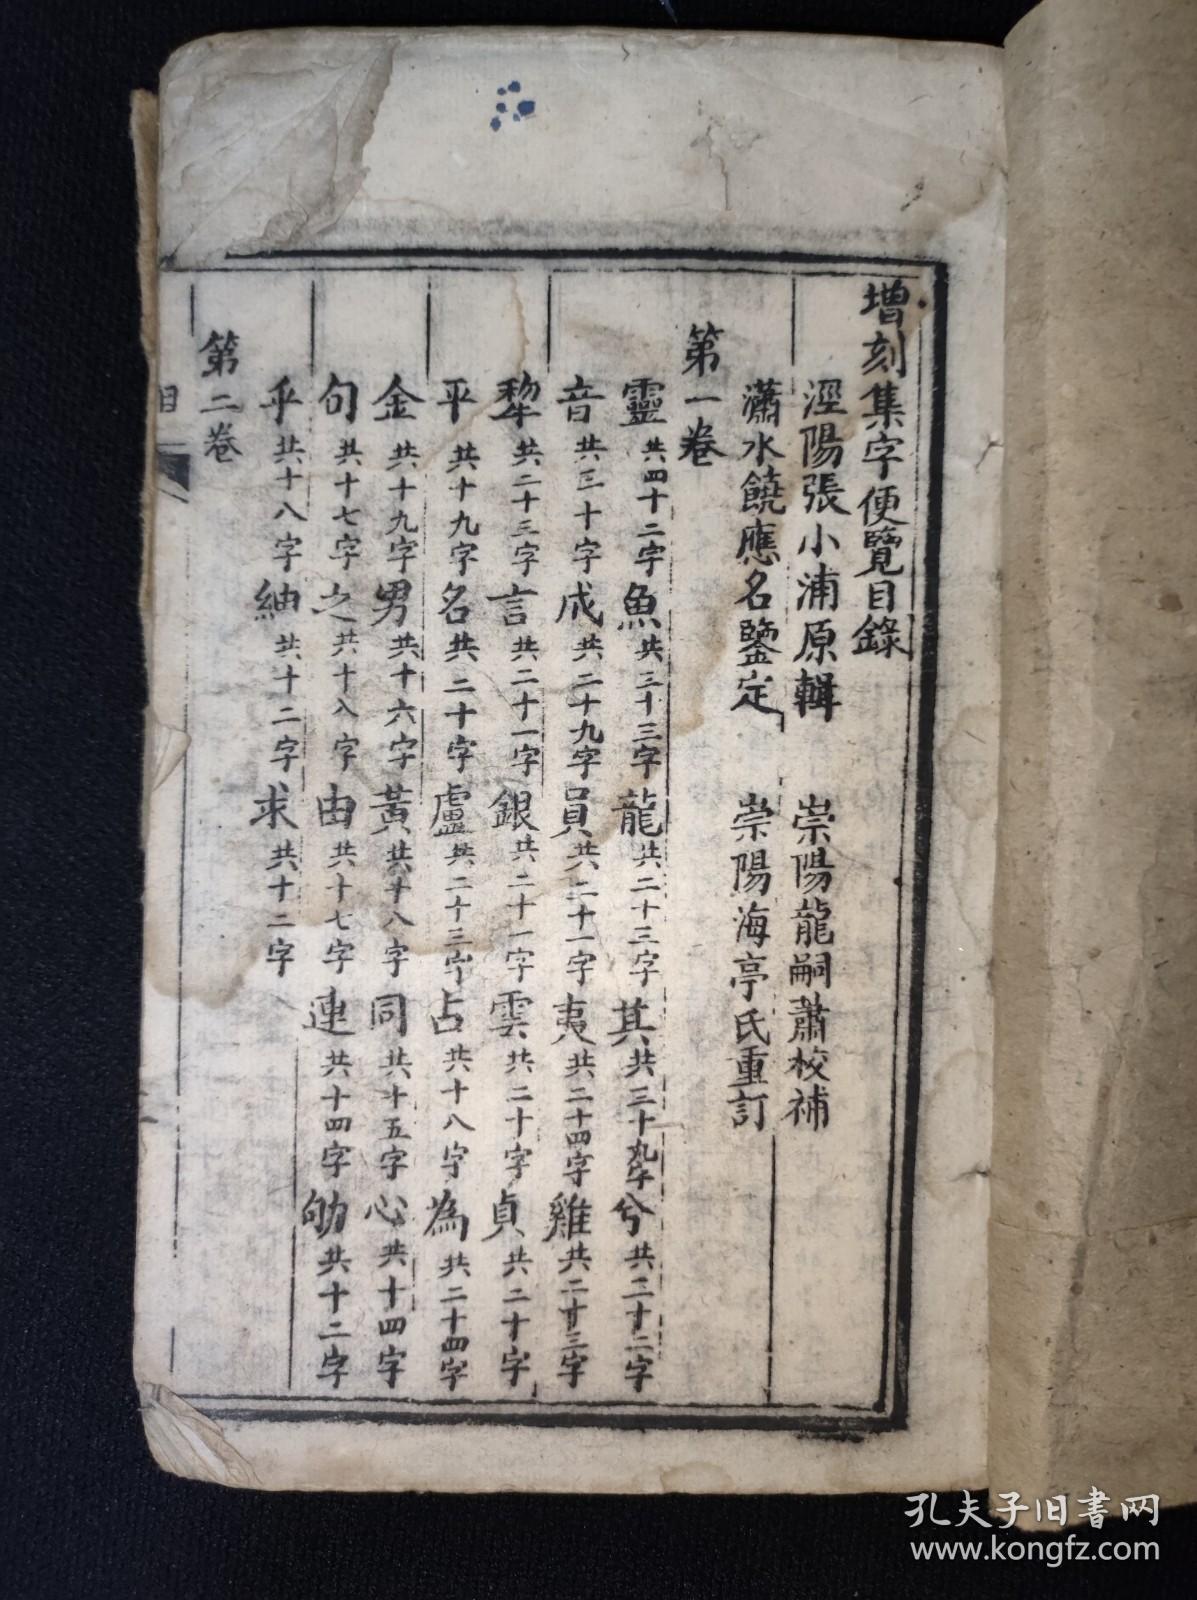 增刻集字便覽目錄
涇陽張小浦原輯　崇陽龍嗣蕭校補
瀟水饒應名鑒定　崇陽海亭氏重訂
第一卷
靈共四十二字魚共三十三字龍共二十三字其共三十九字兮共三十二字
音共三十字成共二十九字員共二十一字夷共二十四字雞共二十三字
犂共二十三字言共二十一字銀共二十一字雲共二十字貞共二十字
平共十九字名共二十字盧共二十三字占共十八字為共二十四字
金共十九字男共十六字黃共十八字同共十五字心共十四字
句共十七字之共十八字由共十七字連共十四字劬共十二字
乎共十八字紬共十二字求共十二字
第二卷
目
孔夫子旧书网
www.kongfz.com